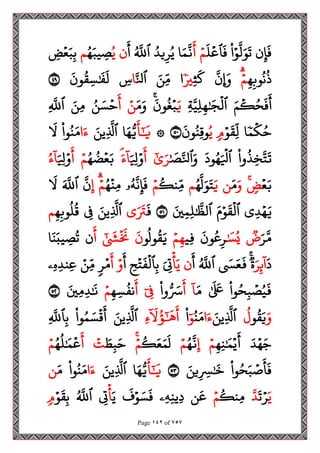 فَإِن تَوَلَّوْا۟ فَٱعْلَمْ أَنَّمَا يُرِيدُ ٱللَّهُ أَن يُصِيبَهُم بِبَعْضِ
ذُنُوبِهِمْ ۗ وَإِنَّ كَثِيرًا مِّنَ ٱلنَّاسِ لَفَـٰسِقُونَ ٤٩
أَفَحُكْمَ ٱلْجَـٰهِلِيَّةِ يَبْغُونَ ۚ وَمَنْ أَحْسَنُ مِنَ ٱللَّهِ
حُكْمًا لِّقَوْمٍ يُوقِنُونَ ٥٠ ۞ يَـٰٓأَيُّهَا ٱلَّذِينَ ءَامَنُوا۟ لَا
تَتَّخِذُوا۟ ٱلْيَهُودَ وَٱلنَّصَـٰرَىٰٓ أَوْلِيَآءَ ۘ بَعْضُهُمْ أَوْلِيَآءُ
بَعْضٍ ۚ وَمَن يَتَوَلَّهُم مِّنكُمْ فَإِنَّهُۥ مِنْهُمْ ۗ إِنَّ ٱللَّهَ لَا
يَهْدِى ٱلْقَوْمَ ٱلظَّـٰلِمِينَ ٥١ فَتَرَى ٱلَّذِينَ فِى قُلُوبِهِم
مَّرَضٌ يُسَـٰرِعُونَ فِيهِمْ يَقُولُونَ نَخْشَىٰٓ أَن تُصِيبَنَا
دَآئِرَةٌ ۚ فَعَسَى ٱللَّهُ أَن يَأْتِىَ بِٱلْفَتْحِ أَوْ أَمْرٍ مِّنْ عِندِهِۦ
فَيُصْبِحُوا۟ عَلَىٰ مَآ أَسَرُّوا۟ فِىٓ أَنفُسِهِمْ نَـٰدِمِينَ ٥٢
وَيَقُولُ ٱلَّذِينَ ءَامَنُوٓا۟ أَهَـٰٓؤُلَآءِ ٱلَّذِينَ أَقْسَمُوا۟ بِٱللَّهِ
جَهْدَ أَيْمَـٰنِهِمْ ۙ إِنَّهُمْ لَمَعَكُمْ ۚ حَبِطَتْ أَعْمَـٰلُهُمْ
فَأَصْبَحُوا۟ خَـٰسِرِينَ ٥٣ يَـٰٓأَيُّهَا ٱلَّذِينَ ءَامَنُوا۟ مَن
يَرْتَدَّ مِنكُمْ عَن دِينِهِۦ فَسَوْفَ يَأْتِى ٱللَّهُ بِقَوْمٍ
Page ١٤٢ of ٧٥٧